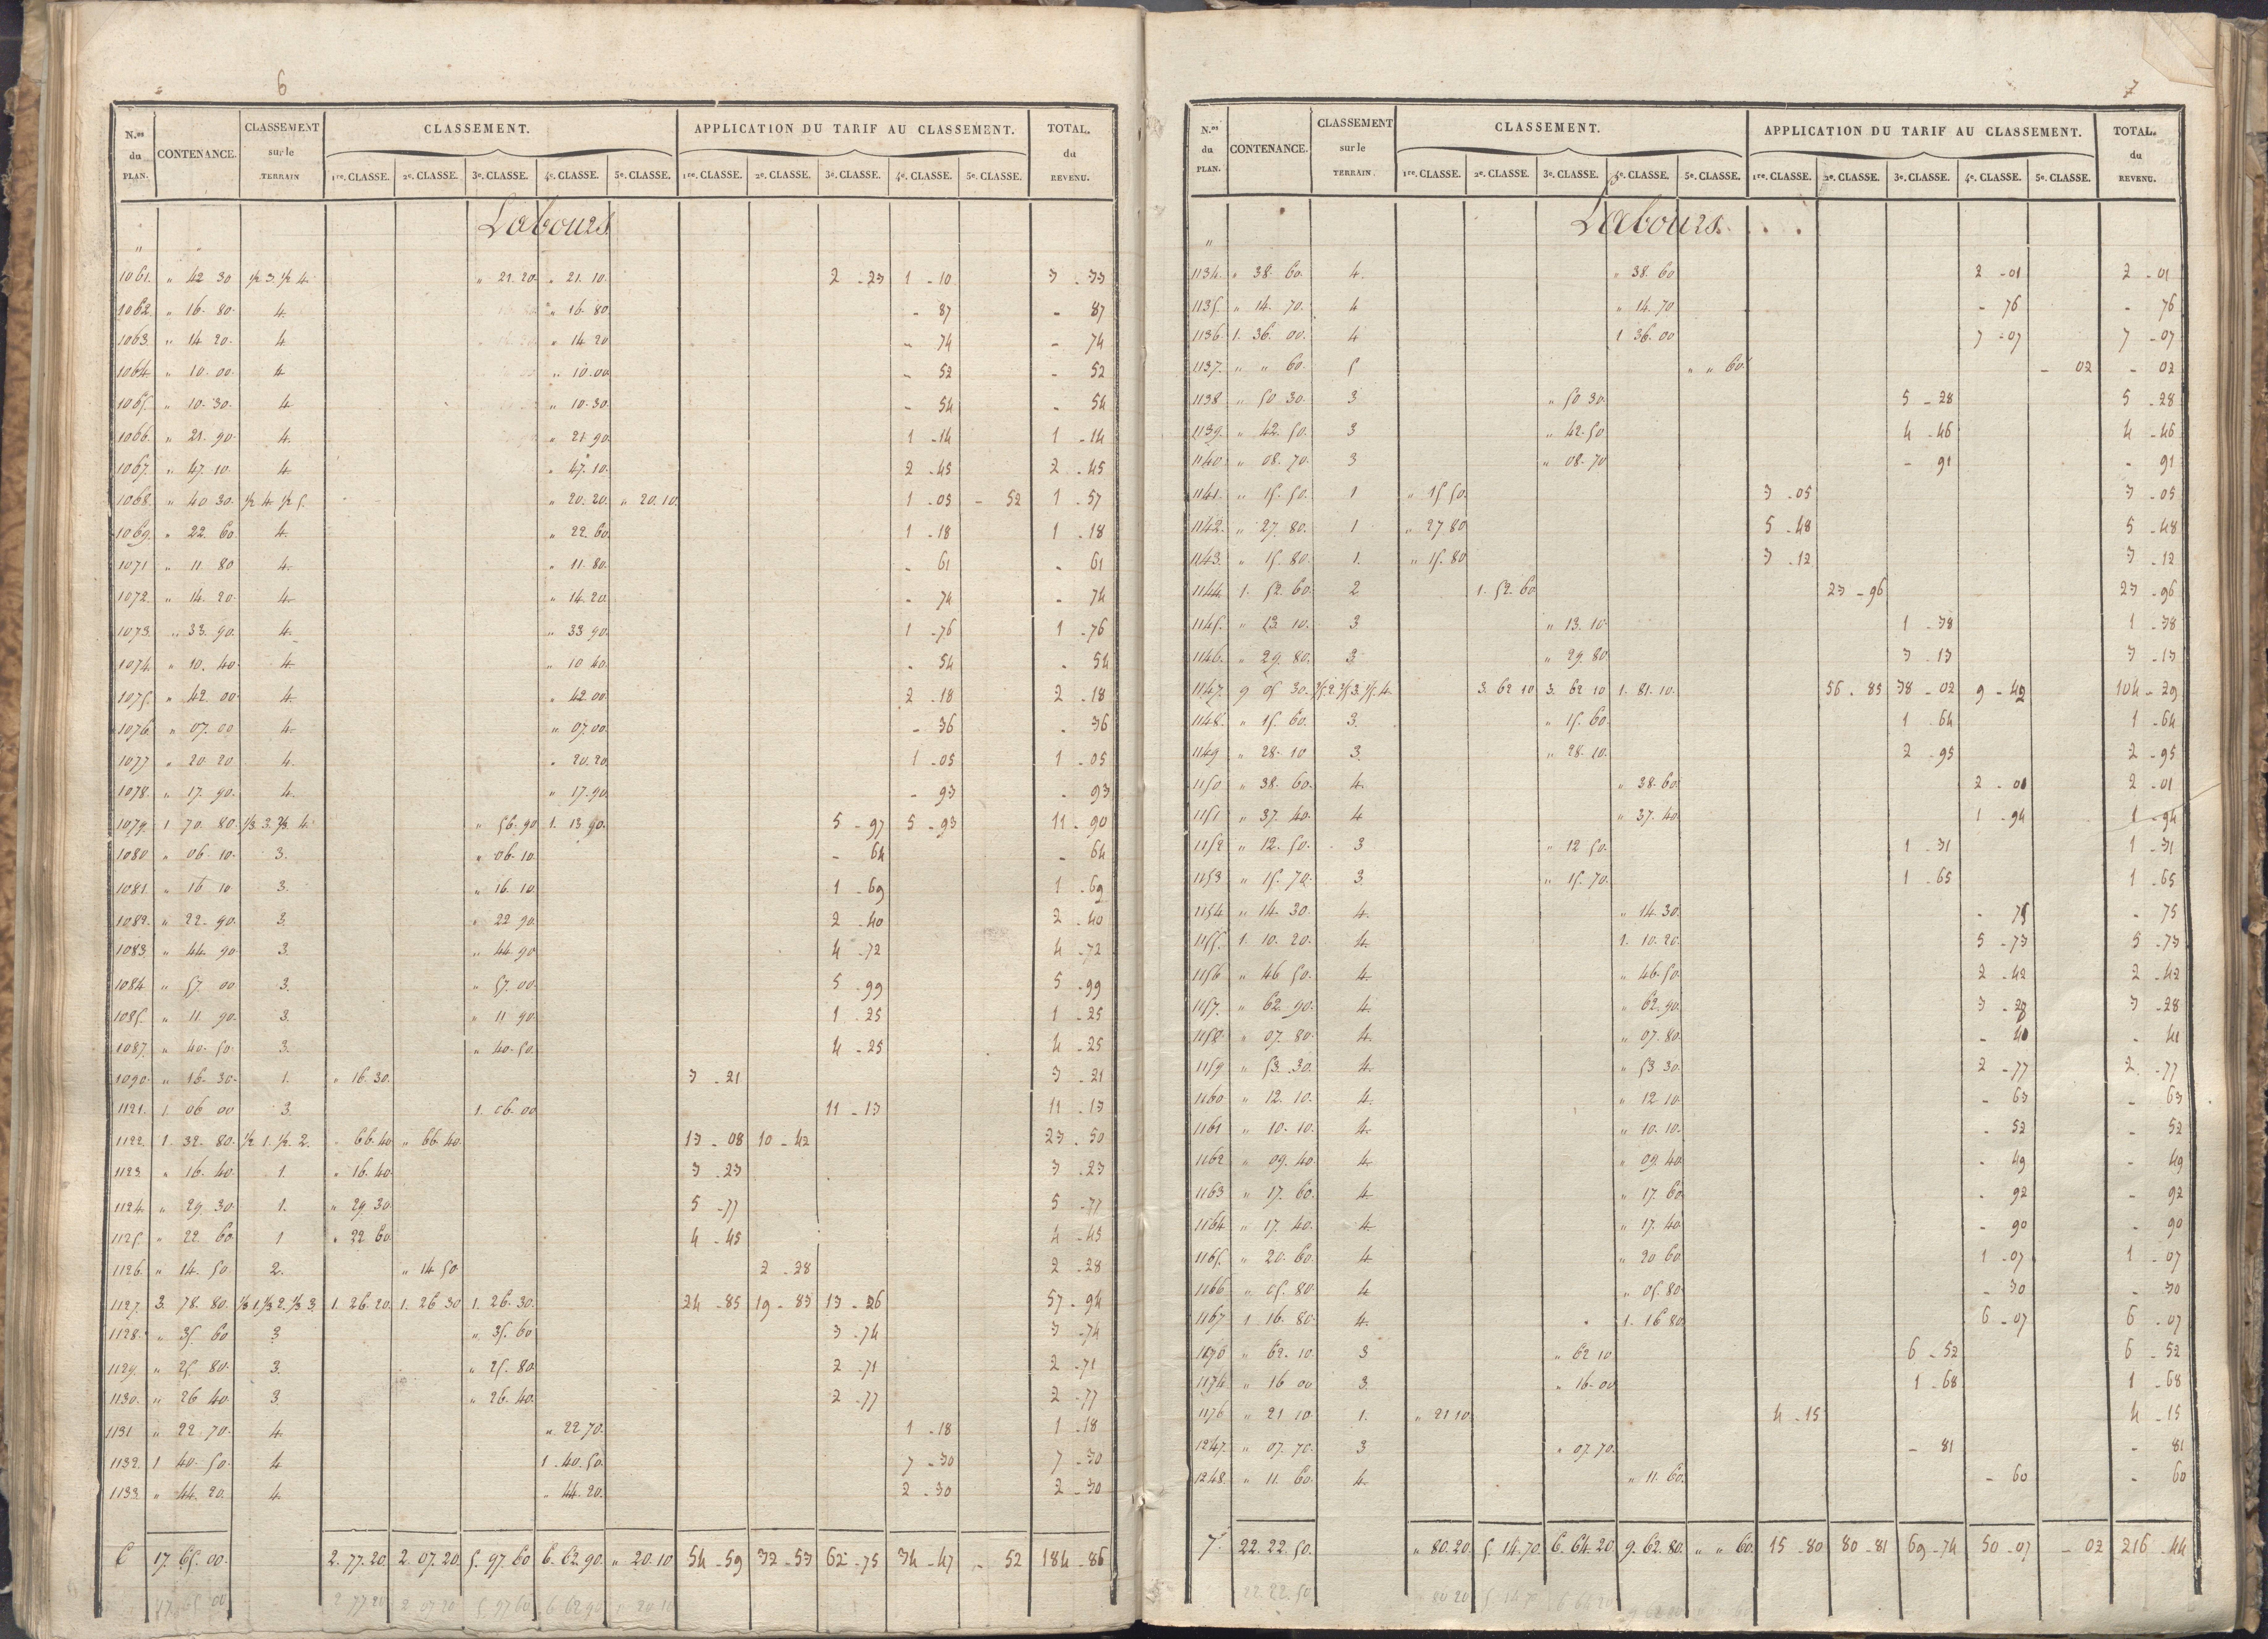 6
N.os du PLAN. CONTENANCE. CLASSEMENT sur le TERRAIN CLASSEMENT. APPLICATION DU TARIF AU CLASSEMENT. TOTAL. du REVENU.
1re. CLASSE. 2e. CLASSE. 3e. CLASSE. 4e. CLASSE. 5e. CLASSE. 1re. CLASSE. 2e. CLASSE. 3e. CLASSE. 4e. CLASSE. 5e. CLASSE.
Labours
"
1061. " 42 30 1/2 3. 1/2 4. " 21. 20. " 21. 10. 2 - 23 1 - 10 3 - 33
1062. " 16. 80. 4. " 16. 80. - 87 - 87
1063. " 14 20. 4. " 14. 20 - 74 - 74
1064. " 10. 00. 4. " 10. 00 - 52 - 52
1065. " 10. 30. 4. " 10. 30. - 54 - 54
1066. " 21. 90. 4. " 21. 90. 1 - 14 1 - 14
1067. " 47. 10. 4. " 47. 10. 2 - 45 2 - 45
1068. " 40 30. 1/2 4. 1/2 5. " 20. 20. " 20. 10. 1 - 05 - 52 1 - 57
1069. " 22. 60. 4. " 22. 60. 1 - 18 1 - 18
1071 " 11. 80 4. " 11. 80. - 61 - 61
1072. " 14. 20. 4. " 14. 20. - 74 - 74
1073. " 33. 90. 4. " 33 90. 1 - 76 1 - 76
1074. " 10. 40. 4. " 10 40. - 54 - 54
1075. " 42. 00. 4. " 42. 00. 2 - 18 2 - 18
1076. " 07. 00 4. " 07. 00. - 36 - 36
1077 " 20. 20 4. " 20. 20. 1 - 05 1 - 05
1078. " 17. 90. 4. " 17. 90. - 93 - 93
1079. 1 70. 80. 1/3 3. 2/3 4. " 56. 90 1. 13 90. 5 - 97 5 - 93 11 - 90
1080 " 06. 10. 3. " 06. 10. - 64 - 64
1081. " 16 10 3. " 16. 10. 1 - 69 1 - 69
1082. " 22. 90. 3. " 22 90. 2 - 40 2 - 40
1083. " 44. 90. 3. " 44. 90 4 - 72 4 - 72
1084. " 57. 00 3. " 57. 00. 5 - 99 5 - 99
1085. " 11 90. 3. " 11 90. 1 - 25 1 - 25
1087. " 40. 50. 3. " 40. 50. 4 - 25 4 - 25
1090. " 16. 30. 1. " 16. 30. 3 - 21 3 - 21
1121. 1. 06 00 3. 1. 06. 00 11 - 13 11 - 13
1122. 1. 32. 80. 1/2. 1. 1/2. 2. " 66. 40 " 66. 40. 13 - 08 10 - 42 23 - 50
1123. " 16. 40. 1. " 16. 40 3 - 23 3 - 23
1124. " 29. 30. 1. " 29. 30 5 - 77 5 - 77
1125. " 22. 60. 1 " 22 60. 4 - 45 4 - 45
1126. " 14. 50. 2. " 14 50. 2 - 28 2 - 28
1127. 3. 78. 80. 1/3 1. 1/3 2. 1/3 3. 1. 26. 20. 1. 26 30 1. 26. 30. 24 - 85 19 - 83 13 - 26 57 - 94
1128. " 35. 60 3 " 35. 60 3 - 74 3 - 74
1129. " 25. 80. 3. " 25. 80. 2 - 71 2 - 71
1130. " 26 40. 3. " 26. 40. 2 - 77 2 - 77
1131 " 22. 70. 4. " 22. 70. 1 - 18 1 - 18
1132. 1 40. 50. 4. 1. 40. 50. 7 - 30 7 - 30
1133. " 44. 20. 4. " 44. 20. 2 - 30 2 - 30
6 17. 65. 00. 2. 77. 20. 2. 07. 20. 5. 97. 60 6. 62. 90. " 20. 10 54 - 59 32 - 53 62 - 75 34 - 47 - 52 184 - 86
17. 65 00 2 77 20 2 07 20 5. 97 60 6 62 90 " 20 10
7
N.os du PLAN. CONTENANCE. CLASSEMENT sur le TERRAIN. CLASSEMENT. APPLICATION DU TARIF AU CLASSEMENT. TOTAL. du REVENU.
1re. CLASSE. 2e. CLASSE. 3e. CLASSE. 4e. CLASSE. 5e. CLASSE. 1re. CLASSE. 2e. CLASSE. 3e. CLASSE. 4e. CLASSE. 5e. CLASSE.
Labours.
"
1134. " 38. 60. 4. " 38. 60 2 - 01 2 - 01
1135. " 14. 70. 4 " 14. 70 - 76 - 76
1136. 1. 36. 00. 4 1 36. 00 7 - 07 7 - 07
1137. " " 60. 5 " " 60. - 02 - 02
1138 " 50 30. 3 " 50 30. 5 - 28 5 - 28
1139. " 42. 50. 3 " 42. 50 4 - 46 4 - 46
1140. " 08. 70. 3 " 08. 70 - 91 - 91
1141. " 15. 50. 1 " 15 50. 3 - 05 3 - 05
1142. " 27. 80. 1 " 27 80 5 - 48 5 - 48
1143. " 15. 80. 1. " 15. 80 3 - 12 3 - 12
1144. 1. 52. 60. 2 1. 52. 60 23 - 96 23 - 96
1145. " 13. 10. 3 " 13. 10. 1 - 38 1 - 38
1146. " 29. 80. 3 " 29 80 3 - 13 3 - 13
1147. 9 05 30. 2/5. 2. 2/5 3. 1/5. 4. 3. 62 10 3. 62 10 1. 81. 10. 56 - 85 38 - 02 9 - 42 104 - 29
1148. " 15. 60. 3. " 15. 60. 1 - 64 1 - 64
1149 " 28. 10 3. " 28. 10. 2 - 95 2 - 95
1150 " 38. 60. 4. " 38. 60. 2 - 01 2 - 01
1151 " 37. 40. 4 " 37. 40. 1 - 94 1 - 94
1152 " 12. 50. 3 " 12 50. 1 - 31 1 - 31
1153 " 15. 70. 3 " 15. 70. 1 - 65 1 - 65
1154 " 14. 30. 4. " 14. 30. - 75 - 75
1155. 1. 10. 20. 4. 1. 10. 20. 5 - 73 5 - 73
1156 " 46 50. 4. " 46. 50. 2 - 42 2 - 42
1157. " 62. 90. 4. " 62. 90. 3 - 28 3 - 28
1158. " 07. 80. 4. " 07. 80. - 40 - 41
1159 " 53. 30. 4. " 53 30. 2 - 77 2 - 77
1160 " 12. 10. 4. " 12 10. - 63 - 63
1161 " 10. 10. 4. " 10. 10. - 52 - 52
1162 " 09. 40. 4. " 09. 40. - 49 - 49
1163 " 17. 60. 4. " 17. 60. - 92 - 92
1164. " 17. 40. 4. " 17. 40. - 90 - 90
1165. " 20. 60. 4. " 20 60. 1 - 07 1 - 07
1166 " 05. 80. 4 " 05. 80. - 30 - 30
1167 1 16. 80. 4. 1. 16 80. 6 - 07 6 - 07
1170 " 62. 10. 3 " 62 10. 6 - 52 6 - 52
1174 " 16 00 3. " 16. 00 1 - 68 1 - 68
1176 " 21 10. 1. " 21 10. 4 - 15 4 - 15
1247. " 07. 70. 3 " 07. 70. - 81 - 81
1248. " 11. 60. 4. " 11. 60. - 60 - 60
7. 22. 22. 50. " 80. 20. 5. 14. 70. 6. 64. 20 9. 62. 80. " " 60. 15 - 80 80 - 81 69 - 74 50 - 07 - 02 216 - 44
22. 22. 50 80 20